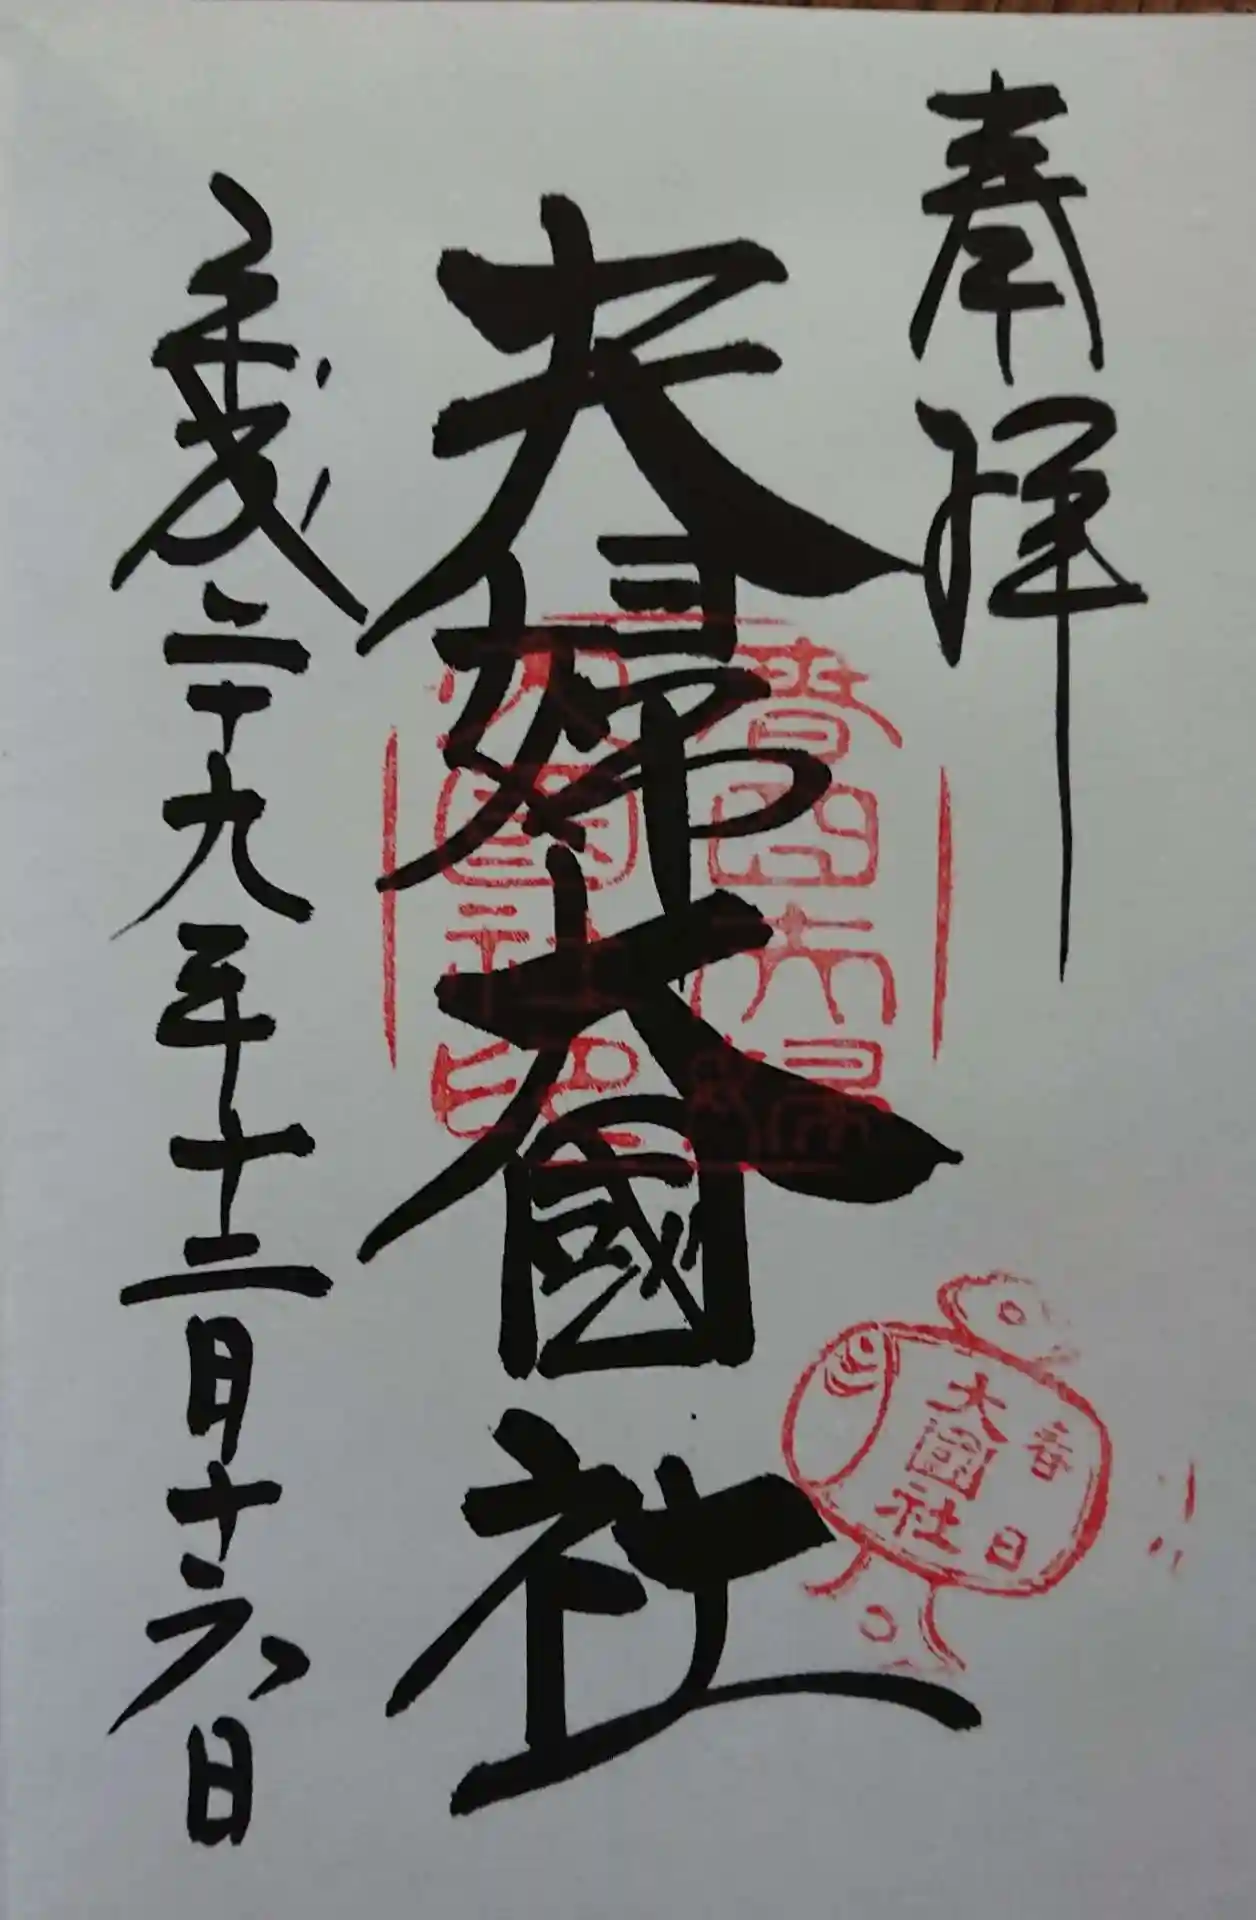 奉拜
夫婦大國社
平成二十九年十二月十六日
春日夫婦
大國社印
春日
大國社